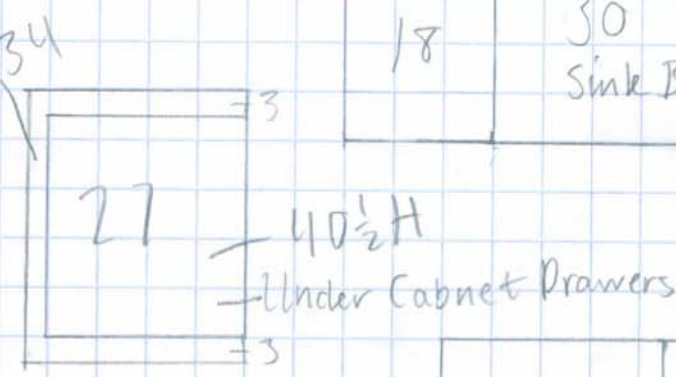 34
18
30
Sink B
3
27
40½H
Under Cabnet Drawers
3